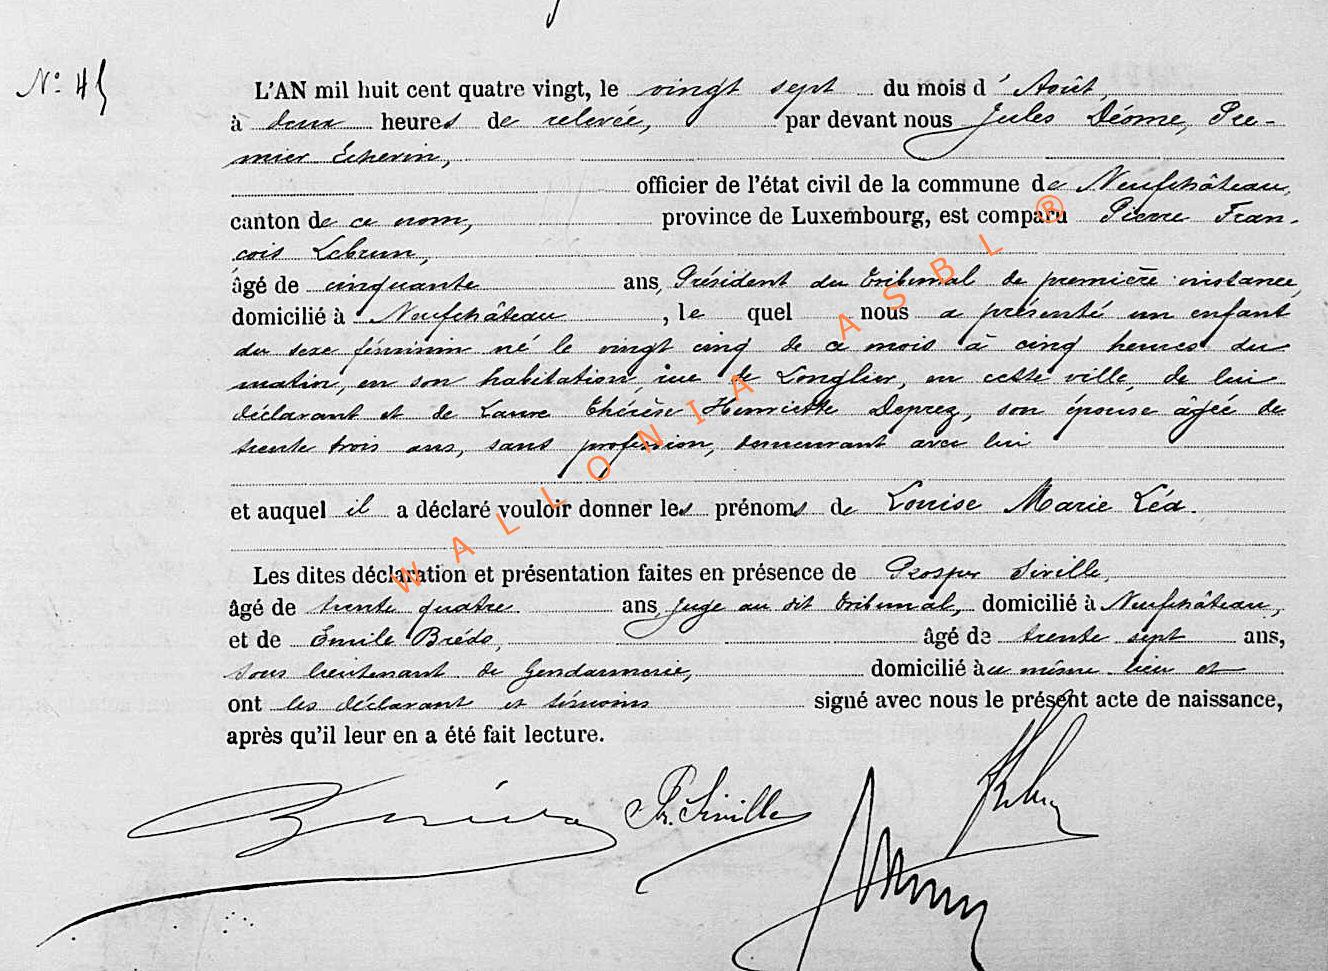 N° 45
L'AN mil huit cent quatre vingt, le vingt sept du mois d'Août,
à deux heures de relevée, par devant nous Jules Déome, Pre-
mier Echevin,
officier de l'état civil de la commune de Neufchâteau,
canton de ce nom, province de Luxembourg, est comparu Pierre Fran-
çois Lebrun,
âgé de cinquante ans, Président du tribunal de première instance,
domicilié à Neufchâteau, le quel nous a présenté un enfant
du sexe féminin né le vingt cinq de ce mois à cinq heures du
matin, en son habitation, rue de Longlier, en cette ville, de lui
déclarant et de Laure Thérèse Henriette Deprez, son épouse âgée de
trente trois ans, sans profession, demeurant avec lui
et auquel il a déclaré vouloir donner les prénoms de Louise Marie Léa.
Les dites déclaration et présentation faites en présence de Prosper Siville,
âgé de trente quatre ans, juge au dit tribunal, domicilié à Neufchâteau,
et de Emile Brédo, âgé de trente sept ans,
sous lieutenant de Gendarmerie, domicilié au même lieu et
ont les déclarant et témoins signé avec nous le présent acte de naissance,
après qu'il leur en a été fait lecture.
Pr. Siville
WALLONIA ASBL ®